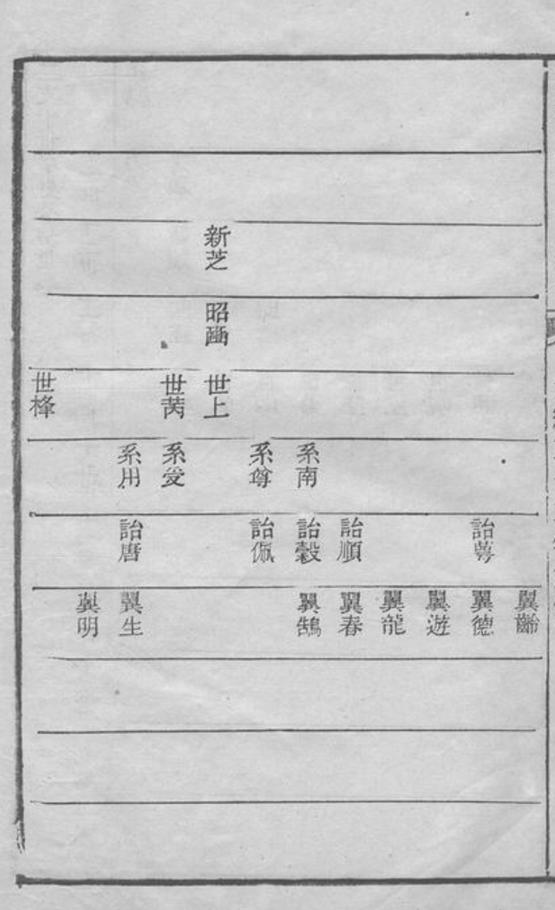 新芝
昭
世上 世芮 世
系南 系尊 系受 系用
詒蕚 詒順 詒穀 詒佩 詒唐
翼齡 翼德 翼遊 翼龍 翼春 翼鵠 翼生 翼明